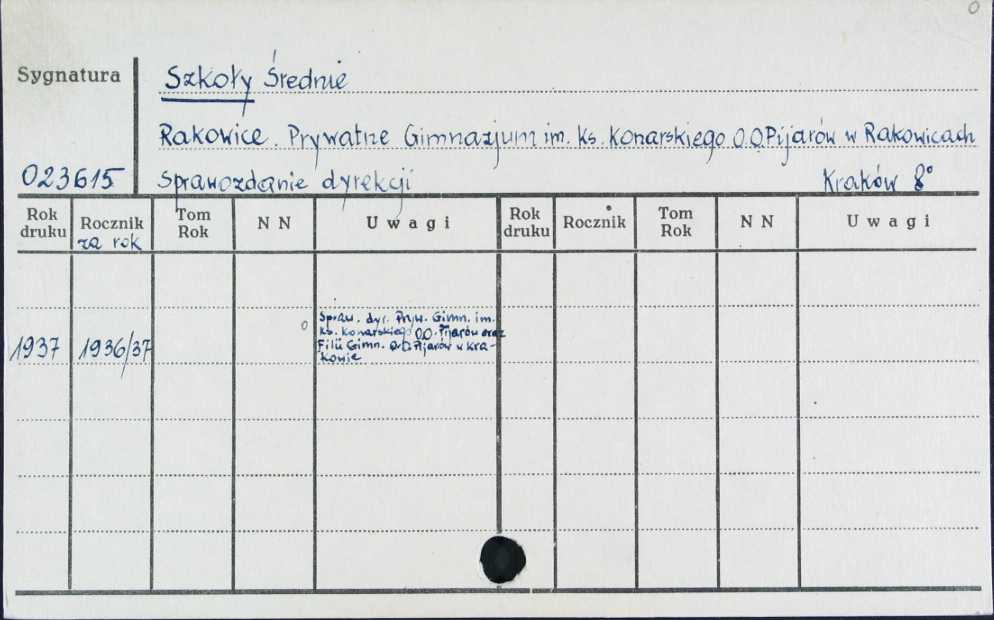 0
Sygnatura
Szkoły Średnie
Rakowice. Prywatne Gimnazjum im. Ks. Konarskiego O.O.Pijarów w Rakowicach
023615 Sprawozdanie dyrekcji Kraków 8°
Rok druku Rocznik za rok Tom Rok N N Uwagi Rok druku Rocznik Tom Rok N N Uwagi
1937 1936/37 0 Spraw. dyr. Pryw. Gimn. im.
Ks. Konarskiego O.O. Pijarów oraz
Filii Gimn. O.O. Pijarów w Kra-
kowie